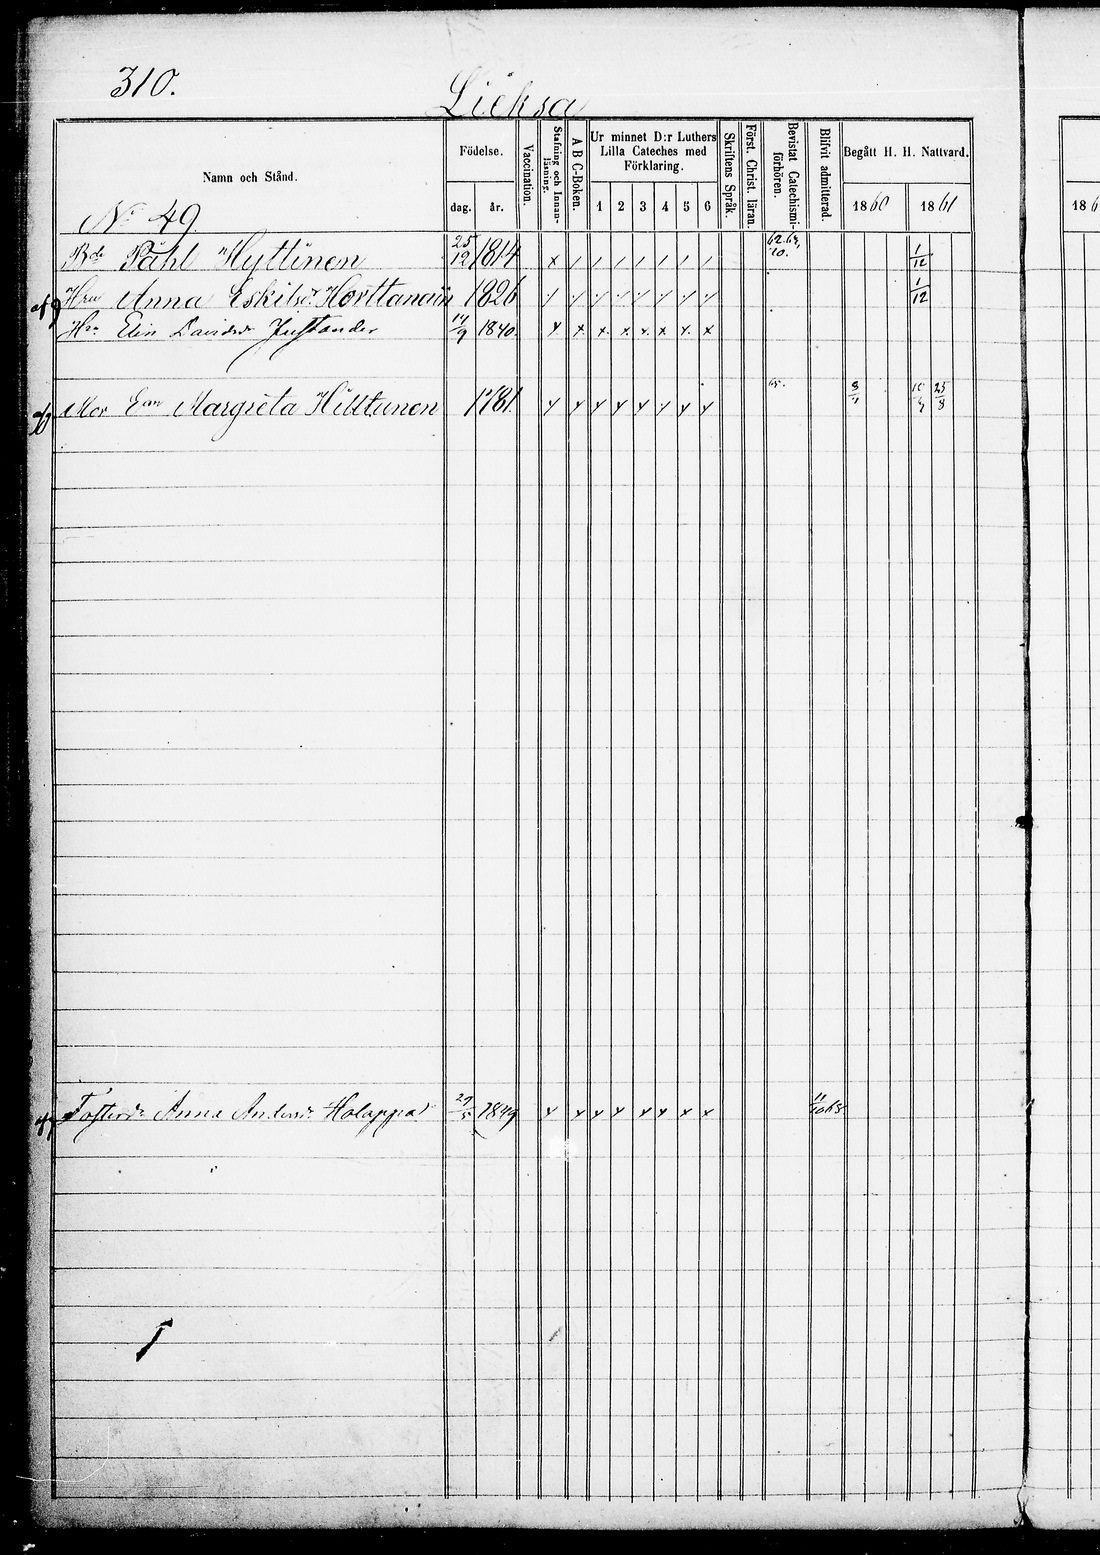 310.
Lieksa
Namn och Stånd.
Födelse.
dag. år.
Vaccination.
Stafning och Innan-läsning.
A B C-Boken.
Ur minnet D:r Luthers Lilla Cateches med Förklaring.
1 2 3 4 5 6
Skriftens Språk.
Först. Christ. läran.
Bevistat Catechismi-förhören.
Blifvit admitterad.
Begått H. H. Nattvard.
1860 1861
186
No 49
Påhl Hyttinen 25/12 1814 x / / / / / / / 1/12
Hru Anna Eskilsdr Horttanain 1826 1/12
Elin Davidsdr 14/9 1840 x x x x x x x x
Mor Margreta Hilttunen 1781 65. 25/8
Fosterdr Anna Andersdr Holappa 1849